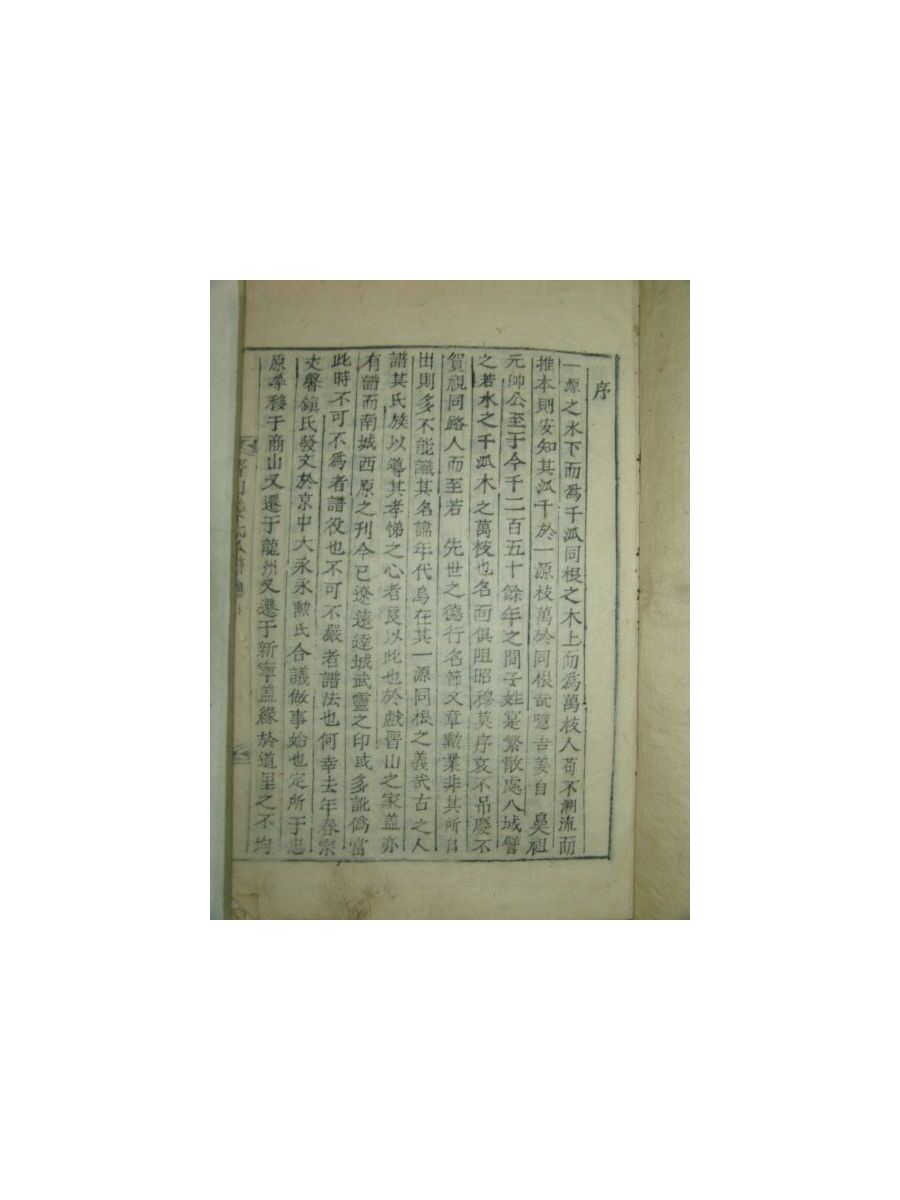 序
一源之水下而爲千泒同根之木上而爲萬枝人苟不溯流而
推本則安知其泒千於一源枝萬於同根哉覽吾姜自 吳祖
元帥公至于今千二百五十餘年之間子姓寔繁散處八域譬
之若水之千泒木之萬枝也名面俱阻昭穆莫序哀不吊慶不
賀視同路人而至若 先世之德行名節文章勲業非其所自
出則多不能識其名諱年代烏在其一源同根之義哉古之人
譜其氏族以導其孝悌之心者良以此也於戲晋山之家盖亦
有譜而南城西原之刊今已遼遠逵城武靈之印或多訛僞當
此時不可不爲者譜役也不可不嚴者譜法也何幸去年春宗
文馨鎭氏發文於京中大永永勲氏合議做事始也定所于忠
原尋移于商山又遷于龍州又遷于新寧盖緣於道里之不均